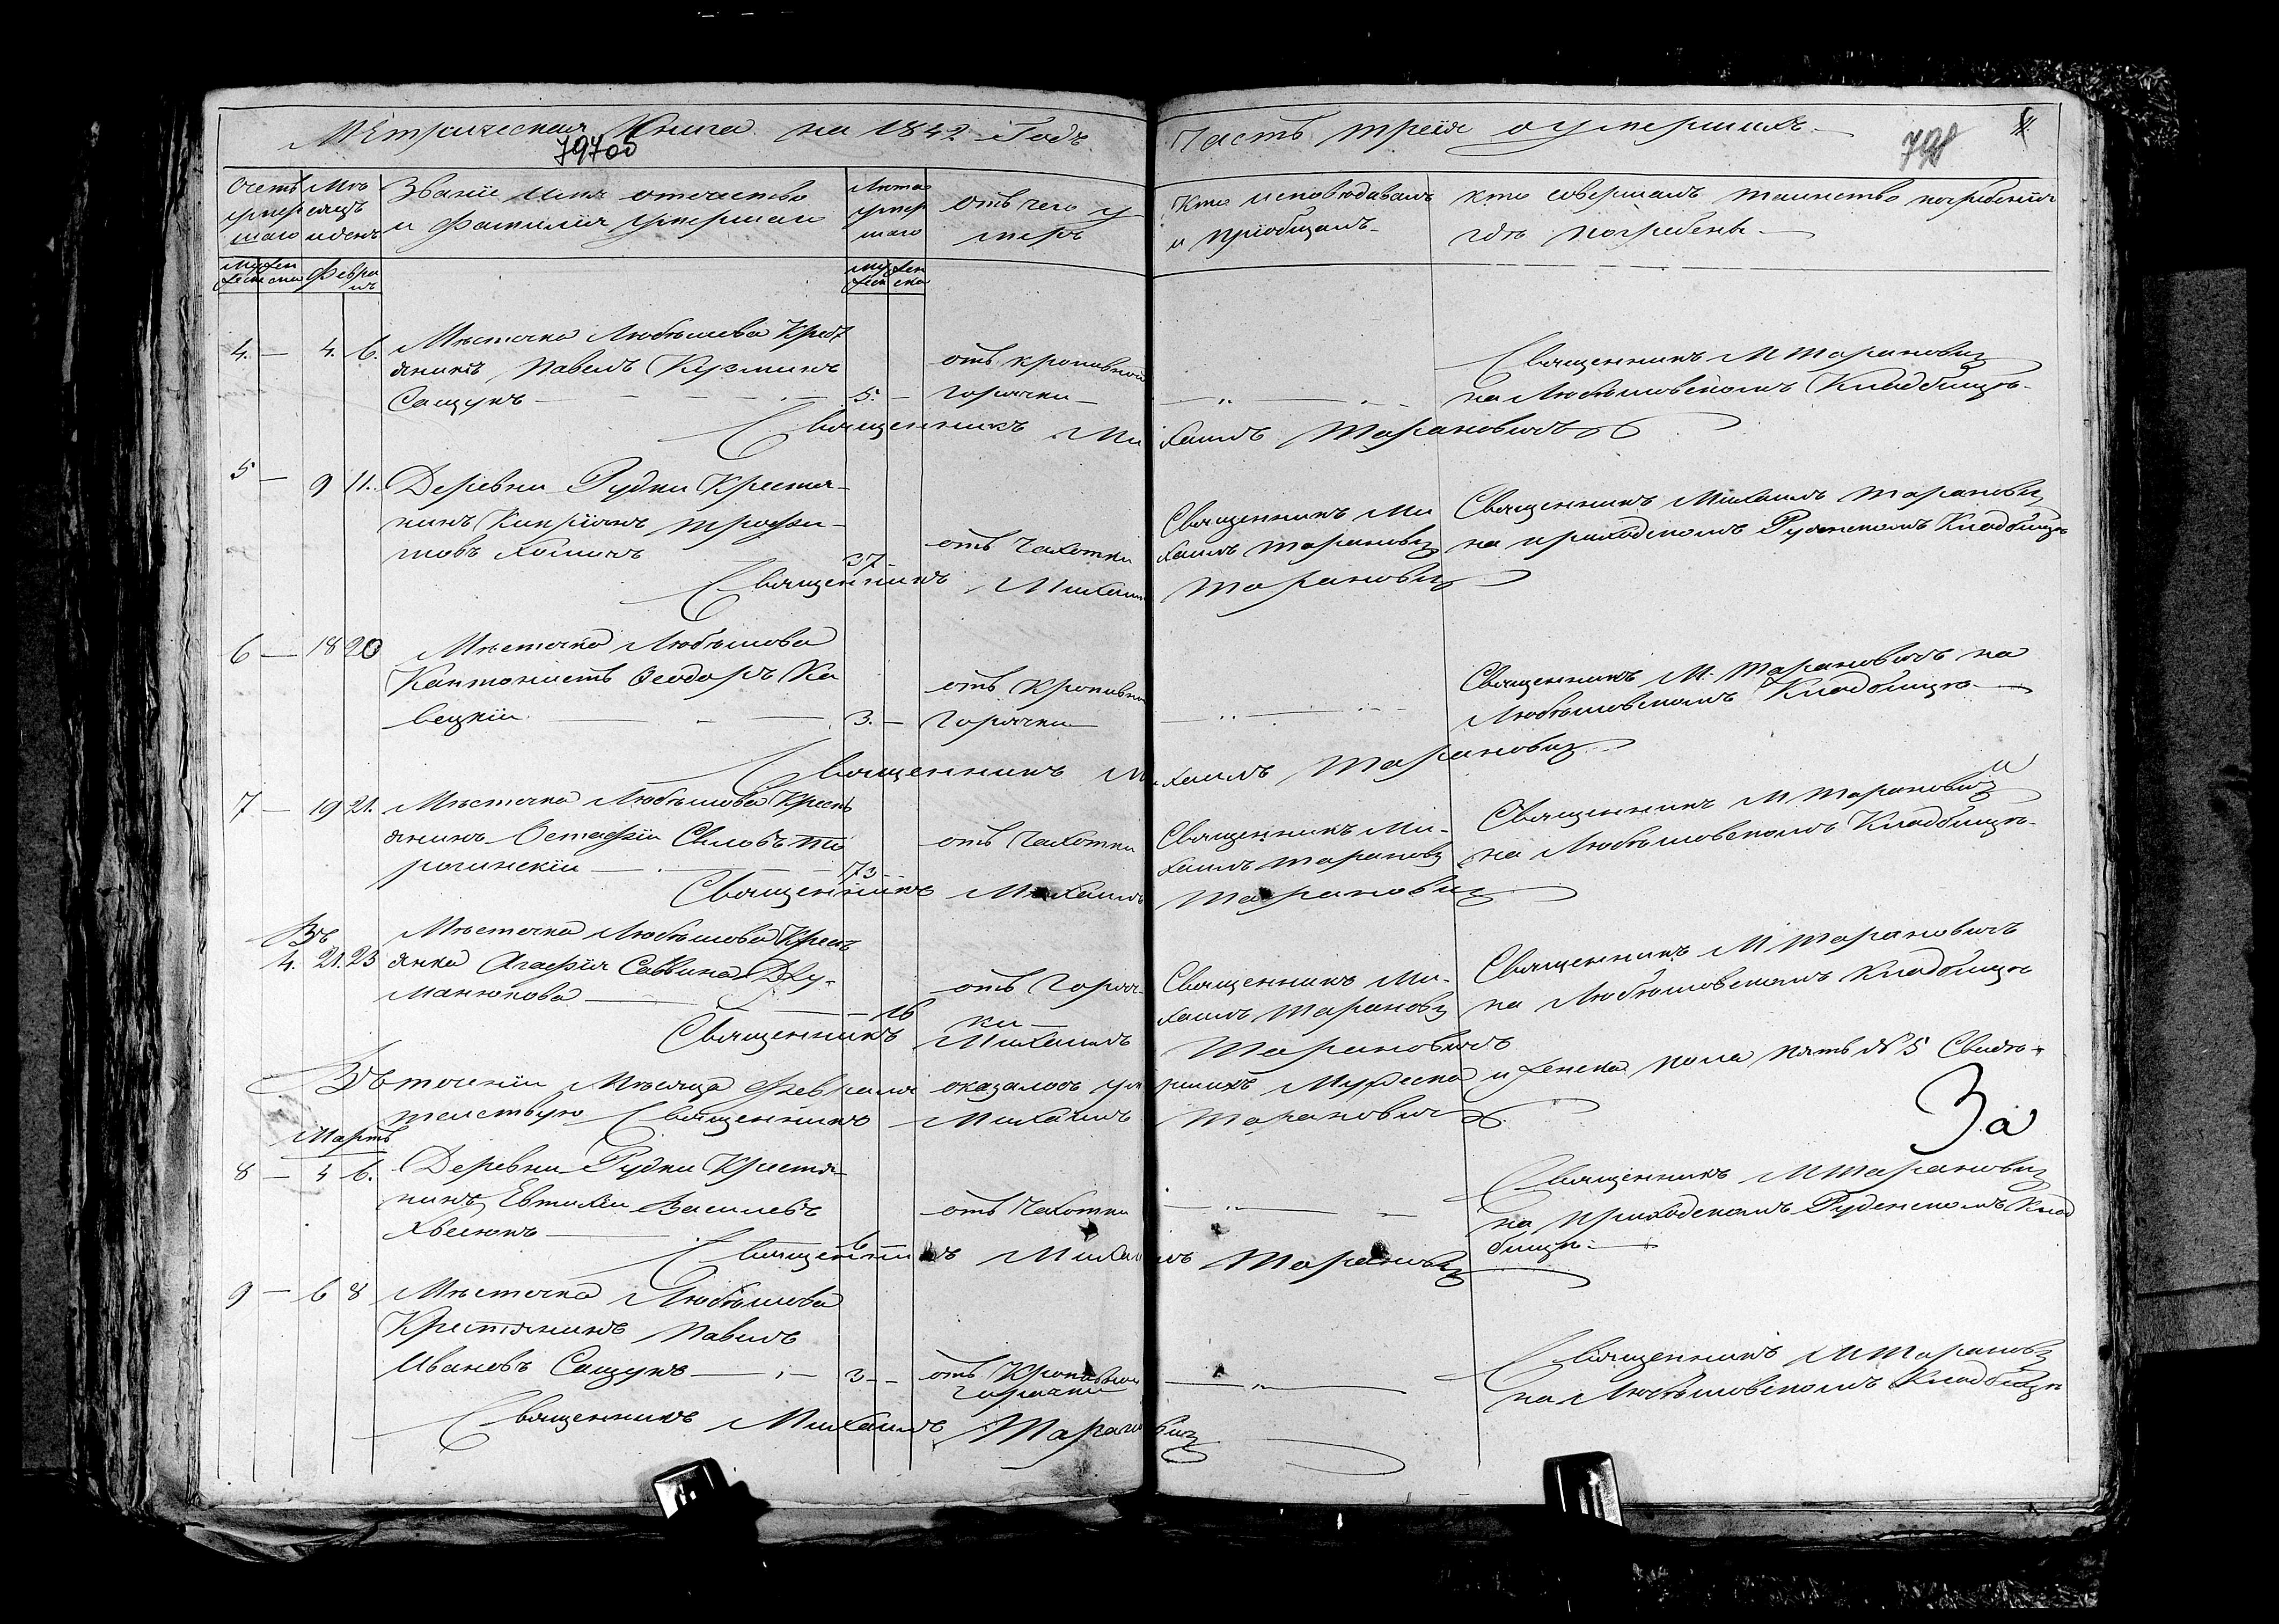 Метрическая Книга на 1842 Годъ
797об
Часть третія о умершихъ
798
Счетъ умер шаго
Мѣ сяцъ и день
Званіе Имя отчество и Фамилія Умершаго
Лѣта умер шаго
отъ чего у меръ
Кто исповѣдавалъ и пріобщалъ
кто совершалъ таинство погребенія гдѣ погребены
Муж еск
Жен ска
Февра ль
Муж еск
Жен ска
4. — 4. 6. Мѣстечка Любѣшова Крест
янинъ Павелъ Кузминъ
Сащукъ — 5. — отъ кропивной горячки —
Священникъ М Тарановичъ
на Любѣшовскомъ Кладбищѣ
Священникъ Михаилъ Тарановичъ
5 — 9 11. Деревни Рудки Крестя-
нинъ Кипріанъ Трофи-
мовъ Хомичъ 37 отъ Чахотки
Священникъ Ми
хаилъ Тарановичъ
Священникъ Михаилъ Тарановичъ
на приходскомъ Руденскомъ Кладбищѣ
Священникъ Михаилъ Тарановичъ
6 — 18 20 Мѣстечка Любѣшова
Кантонистъ Ѳеодоръ Ка
вецкій — 3. — отъ Кропивной Горячки
Священникъ М. Тарановичъ на
Любѣшовскомъ Кладбищѣ
Священникъ Михаилъ Тарановичъ
7 — 19 21. Мѣстечка Любѣшова Кресть
янинъ Остафій Силовъ
— 73 — отъ Чахотки
Священникъ Ми-
хаилъ Тарановичъ
Священникъ М Тарановичъ
на Любѣшовскомъ Кладбищѣ
Священникъ Михаилъ Тарановичъ
4. 21. 23 Мѣстечка Любѣшова Кресть
янка Агафія Саввина
— 16 отъ Горяч-
ки
Священникъ Ми-
хаилъ Тарановичъ
Священникъ М Тарановичъ
на Любѣшовскомъ Кладбищѣ
Священникъ Михаилъ Тарановичъ
Въ теченіи Мѣсяца Февраля оказалось умершихъ Мужеска и женска пола пять № 5 Свидѣ-
телствую Священникъ Михаилъ Тарановичъ
За
Мартъ
8 — 4 6. Деревни Рудки Крестя-
нинъ Евтихій Василевъ
Хвесюкъ — 6 отъ Чахотки
Священникъ М Тарановичъ
на Приходскомъ Руденскомъ Клад
бищѣ
Священникъ Михаилъ Тарановичъ
9 — 6 8 Мѣстечка Любѣшова
Крестянинъ Павелъ
Ивановъ Сащукъ — 3 — отъ Кропивной горячки
Священникъ М Тарановичъ
на Любѣшовскомъ Кладбищѣ
Священникъ Михаилъ Тарановичъ